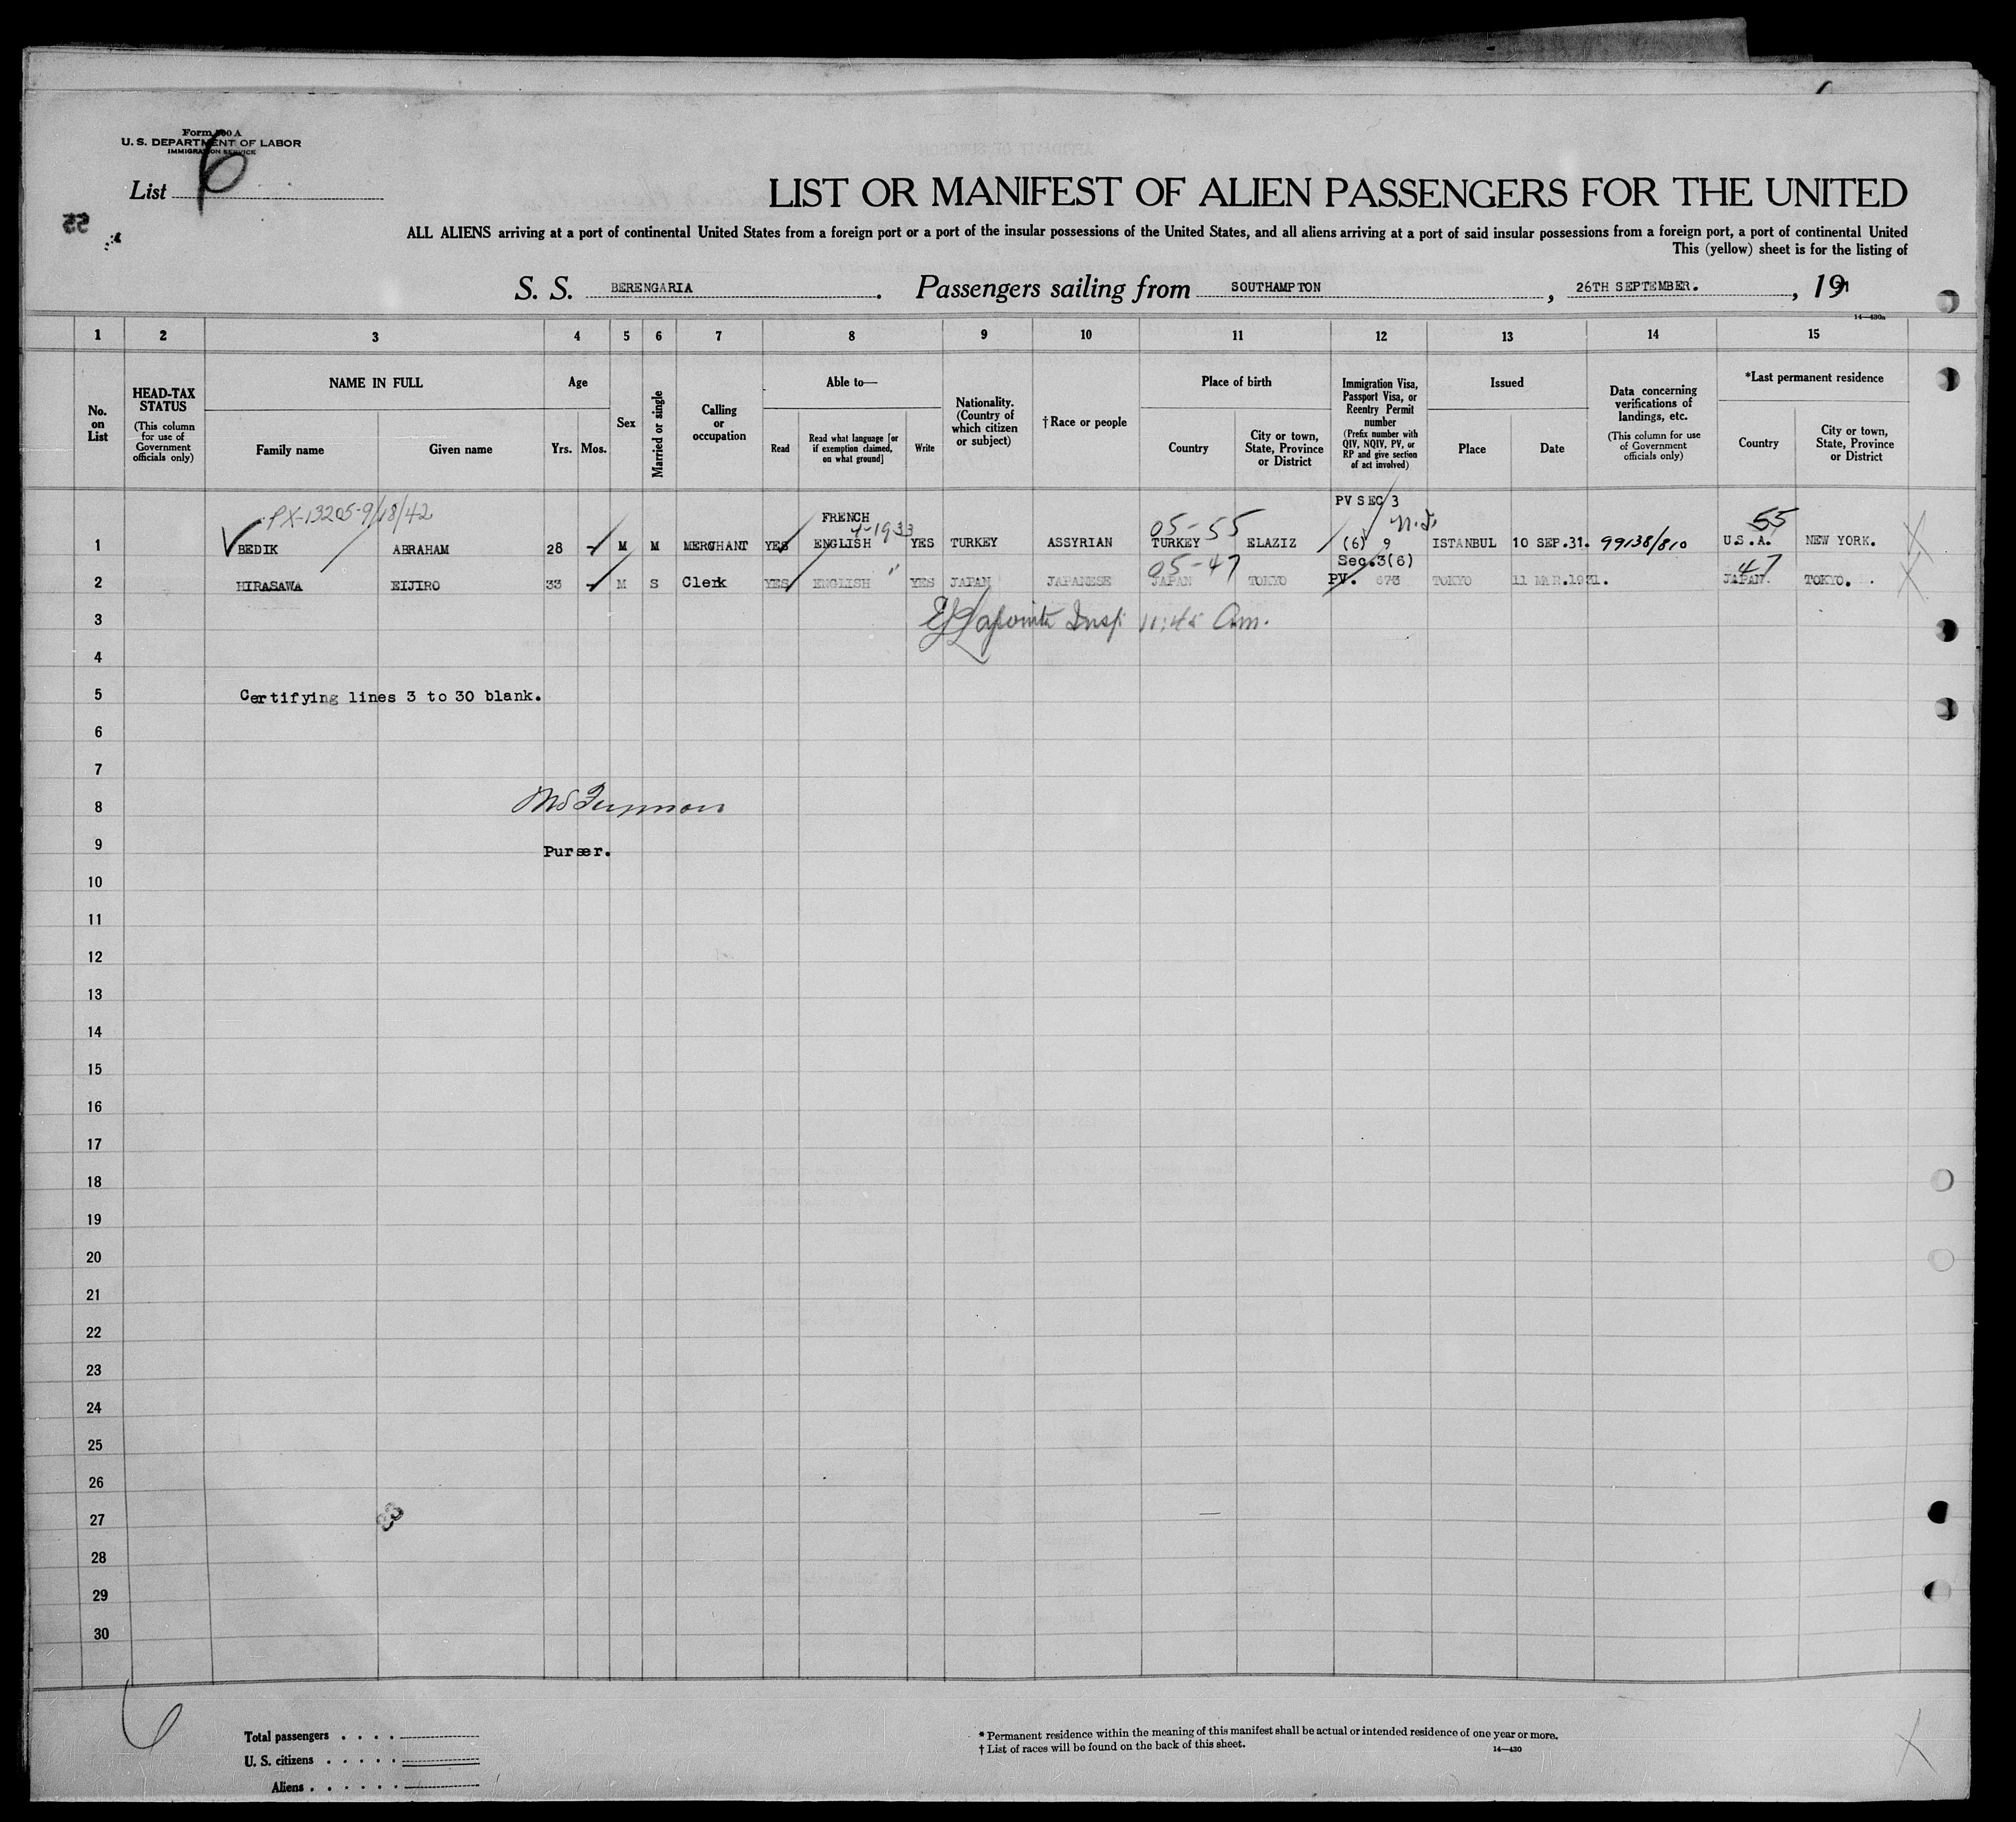 Form 500 A
U. S. DEPARTMENT OF LABOR
IMMIGRATION SERVICE
List 6
55
LIST OR MANIFEST OF ALIEN PASSENGERS FOR THE UNITED
ALL ALIENS arriving at a port of continental United States from a foreign port or a port of the insular possessions of the United States, and all aliens arriving at a port of said insular possessions from a foreign port, a port of continental United
This (yellow) sheet is for the listing of
S. S. BERENGARIA. Passengers sailing from SOUTHAMPTON, 26TH SEPTEMBER., 19
14—430a
1 2 3 4 5 6 7 8 9 10 11 12 13 14 15
No. on List
HEAD-TAX STATUS (This column for use of Government officials only)
NAME IN FULL
Family name Given name
Age
Yrs. Mos.
Sex
Married or single
Calling or occupation
Able to—
Read
Read what language [or if exemption claimed, on what ground]
Write
Nationality. (Country of which citizen or subject)
†Race or people
Place of birth
Country
City or town, State, Province or District
Immigration Visa, Passport Visa, or Reentry Permit number (Prefix number with QIV, NQIV, PV, or RP and give section of act involved)
Issued
Place Date
Data concerning verifications of landings, etc. (This column for use of Government officials only)
*Last permanent residence
Country
City or town, State, Province or District
PX-13205-9/18/42 FRENCH 4-1933 05-55 PV SEC 3 55
1 BEDIK ABRAHAM 28 - M M MERCHANT YES ENGLISH YES TURKEY ASSYRIAN TURKEY ELAZIZ (6) 9 ISTANBUL 10 SEP.31. 99138/810 U.S.A. NEW YORK.
05-47 Sec.3(6) 47
2 HIRASAWA EIJIRO 33 - M S Clerk YES ENGLISH " YES JAPAN JAPANESE JAPAN TOKYO PV. 673 TOKYO 11 MAR.1931. JAPAN. TOKYO.
3 Insp 11:45 am.
4
5 Certifying lines 3 to 30 blank.
6
7
8
9 Purser.
10
11
12
13
14
15
16
17
18
19
20
21
22
23
24
25
26
27
28
29
30
6
Total passengers
U. S. citizens
Aliens
* Permanent residence within the meaning of this manifest shall be actual or intended residence of one year or more.
† List of races will be found on the back of this sheet.
14—430